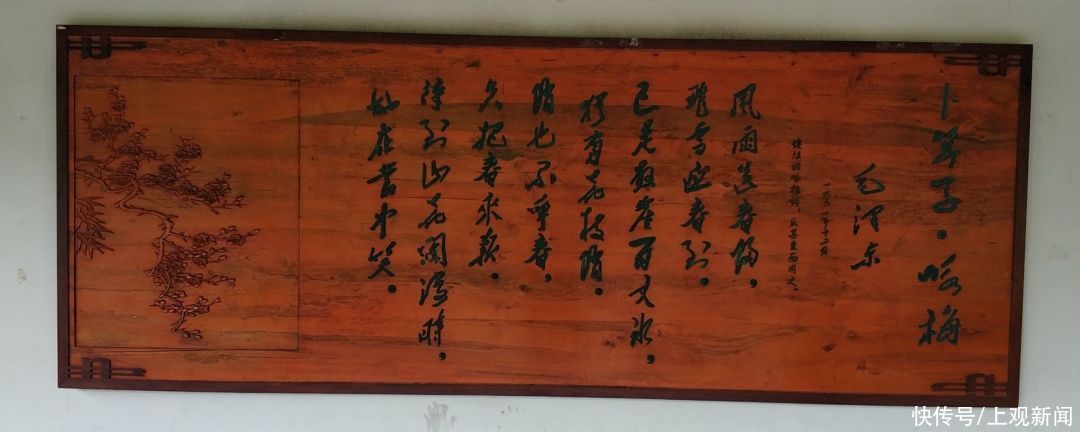 卜算子·咏梅
毛泽东
一九六一年十二月
读陆游咏梅词，反其意而用之。
風雨送春归，
飛雪迎春到。
已是悬崖百丈冰，
犹有花枝俏。
俏也不争春，
只把春来报。
待到山花烂漫時，
她在丛中笑。
快传号/上观新闻